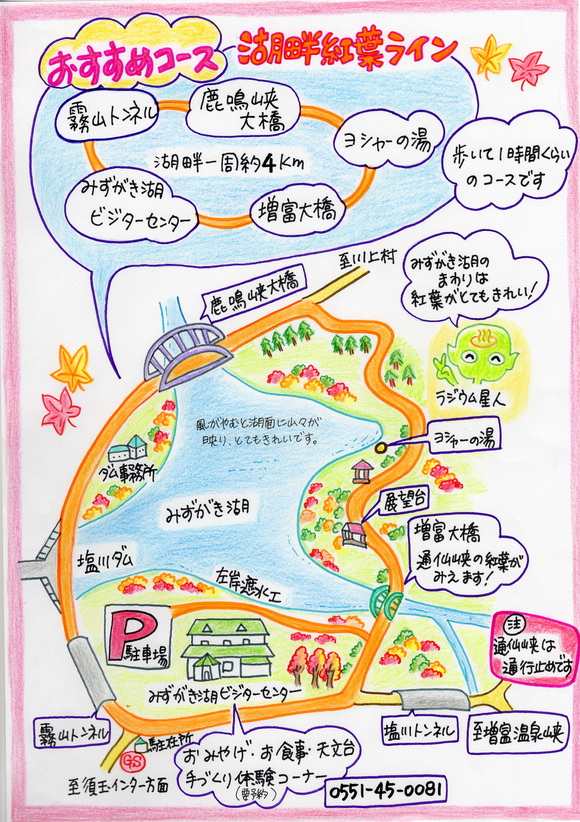 おすすめコース
湖畔紅葉ライン
霧山トンネル
鹿鳴峡
大橋
ヨシャーの湯
湖畔一周約4km
みずがき湖
ビジターセンター
増富大橋
歩いて1時間くらい
のコースです
至川上村
みずがき湖の
まわりは
紅葉がとてもきれい!
鹿鳴峡大橋
ラジウム星人
風がやむと湖面に山々が
映り、とてもきれいです。
ヨシャーの湯
ダム事務所
展望台
みずがき湖
増富大橋
通仙峡の紅葉が
みえます!
塩川ダム
左岸遮水工
P
駐車場
注
通仙峡は
通行止めです
みずがき湖ビジターセンター
霧山トンネル
駐在所
GS
塩川トンネル
至増富温泉峡
至須玉インター方面
おみやげ・お食事・天文台
手づくり体験コーナー
(要予約)
0551-45-0081